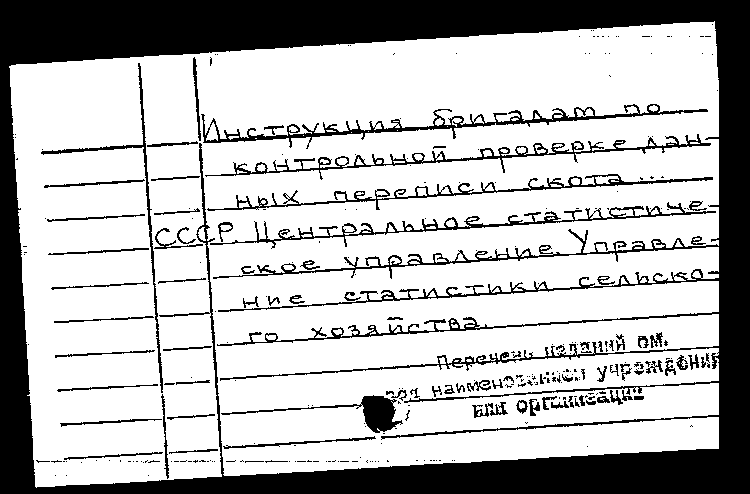 Инструкция бригадам по
контрольной проверке дан-
ных переписи скота ...
СССР. Центральное статистиче-
ское управление. Управле-
ние статистики сельско-
го хозяйства.
Перечень изданий см.
под наименованием учреждения
или организации